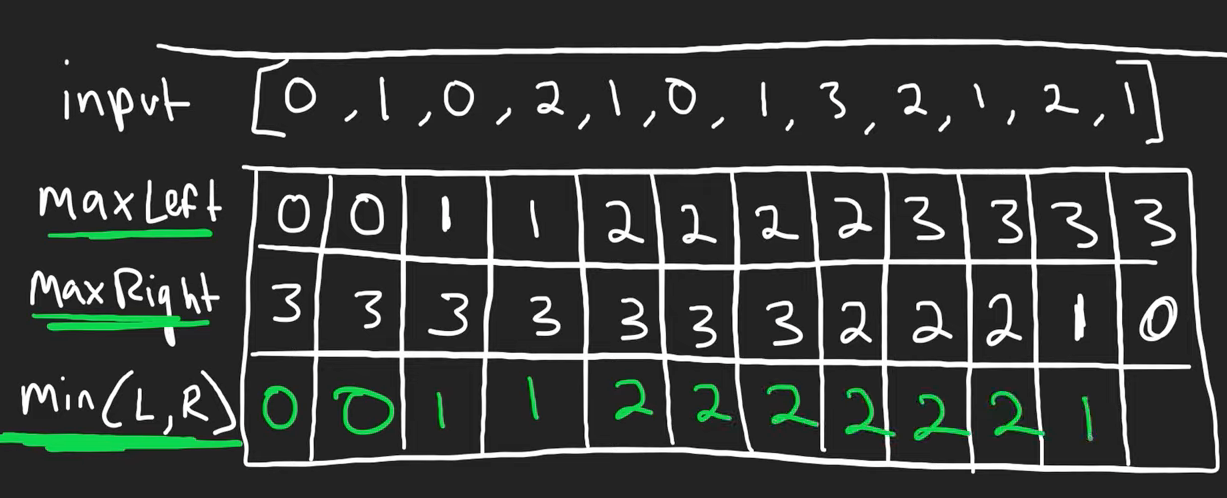 input [0, 1, 0, 2, 1, 0, 1, 3, 2, 1, 2, 1]
maxLeft 0 0 1 1 2 2 2 2 3 3 3 3
MaxRight 3 3 3 3 3 3 3 2 2 2 1 0
min(L,R) 0 0 1 1 2 2 2 2 2 2 1